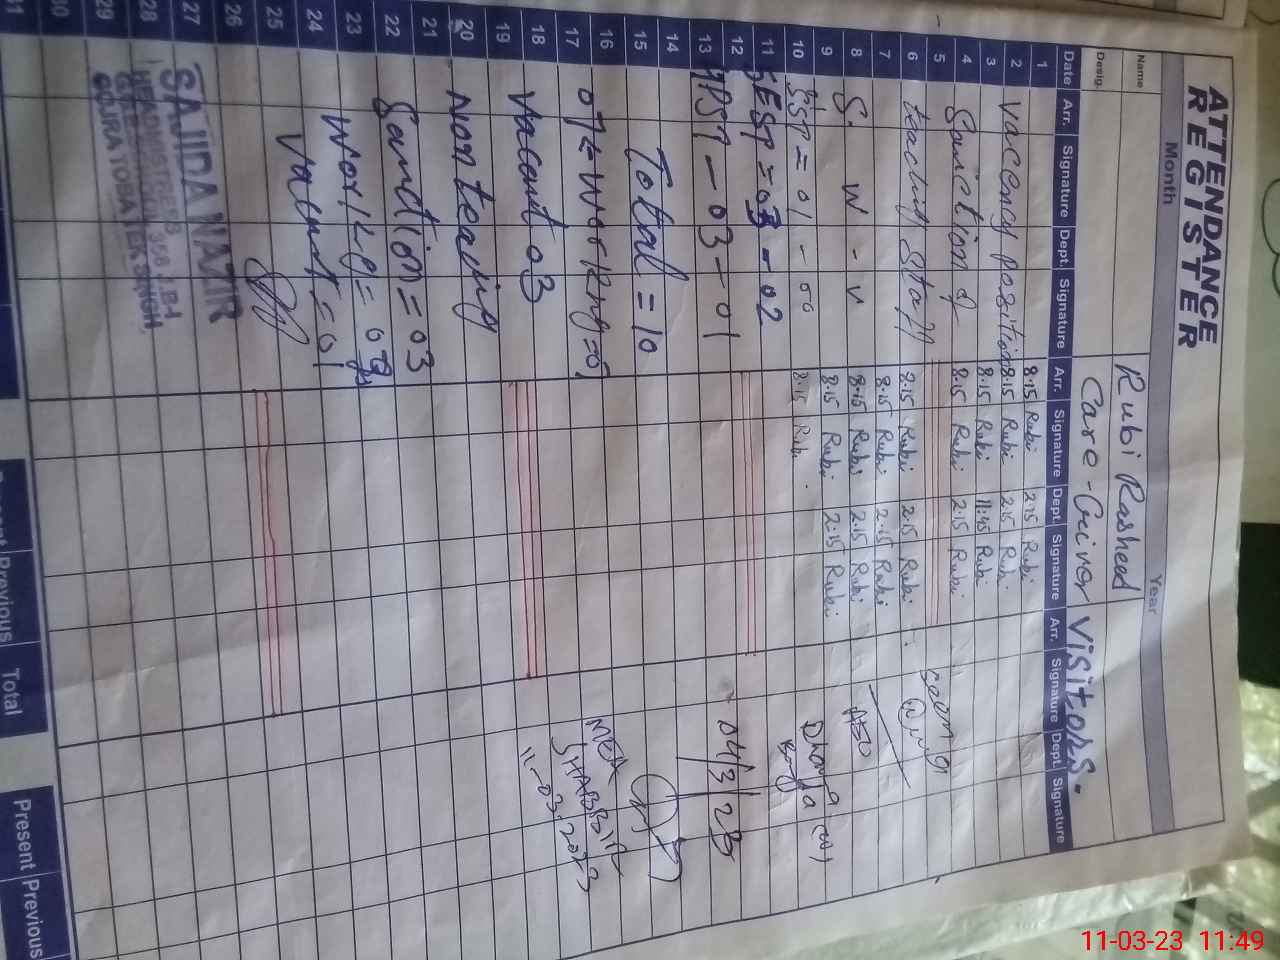 ATTENDANCE
REGISTER
Month
Year
Name
Rubi Rasheed
Desig.
Care-Giver
Visitors.
Date Arr. Signature Dept. Signature Arr. Signature Dept. Signature Arr. Signature Dept. Signature
1 8.15 Rubi 2.15 Rubi
2 Vacency position 8.15 Rubi 2.15 Rubi
3 8.15 Rubi 11:45 Rubi
4 Sanction of 8.15 Rubi 2.15 Rubi
5
6 teaching staff 8.15 Rubi 2.15 Rubi
7 8.15 Rubi 2.15 Rubi
8 S. W - V 8.15 Rubi 2.15 Rubi AEO
9 8.15 Rubi 2:15 Rubi
10 SSP = 01 - 00 8.15 Rubi
11 ESP = 03 - 02
12 PST - 03 - 01 04/3/23
13
14
15 Total = 10
16 MEA
17 07 = working SHABBIR
18 11-03-2023
19 Vacant 03
20
21 Non teaching
22
23 Sanction = 03
24 Work
25 Vacant = 01
26
27
28
29
30
31
SAJIDA NAZIR
HEADMISTRESS
358 J.B
GOJRA TOBA TEK SINGH
Present Previous Total
Present Previous
11-03-23 11:49